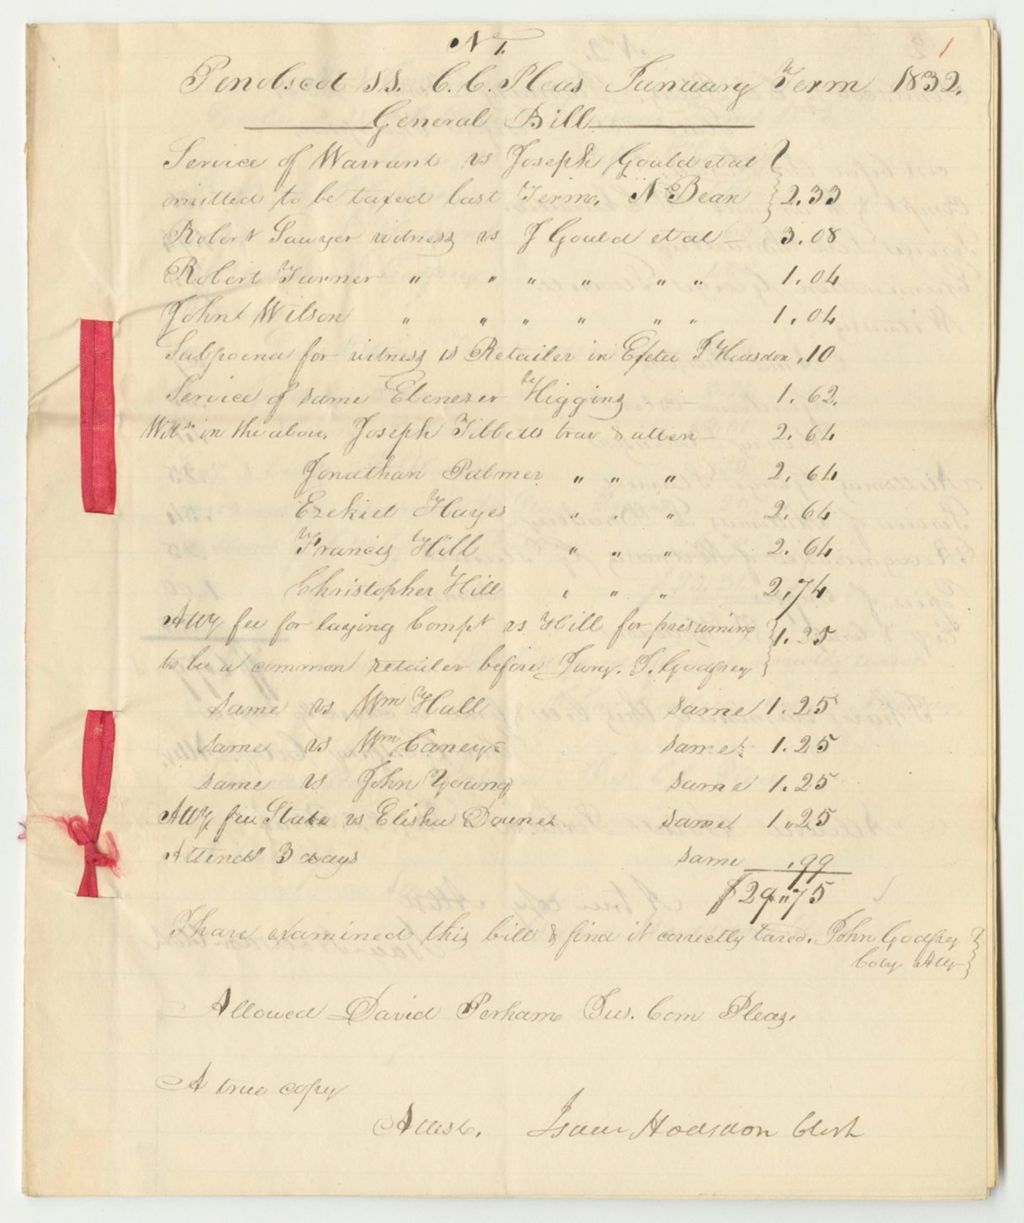 No 1.
1
Penobscot ss. C. C. Pleas January Term 1832.
General Bill
Service of Warrant vs Joseph Gould et al
omitted to be taxed last Term. N Bean 2.33
Robert Sawyer witness vs J Gould et al 3.08
Robert Turner " " " " " " 1.04
John Wilson " " " " " " 1.04
Subpoena for witness vs Retailer in Exeter I Hodsdon .10
Service of same Ebenezer Higgins 1.62.
Wits in the above. Joseph Tibbetts trav & atten 2.64
Jonathan Palmer " " " 2.64
Ezekiel Hayes " " " 2.64
Francis Hill " " " 2.64
Christopher Hill " " " 2.74
Atty fee for laying Compt vs Hill for presuming
to be a common retailer before Jury. J. Godfrey 1.25
same vs Wm Hall same 1.25
same vs Wm Caney same 1.25
same vs John Young same 1.25
Atty fee State vs Elisha Downes same 1.25
Attend 3 days same .99
$29.75
I have examined this bill & find it correctly taxed. John Godfrey
Coty Atty
Allowed David Perham Jus. Com Pleas.
A true copy
Attest. Isaac Hodsdon Clerk